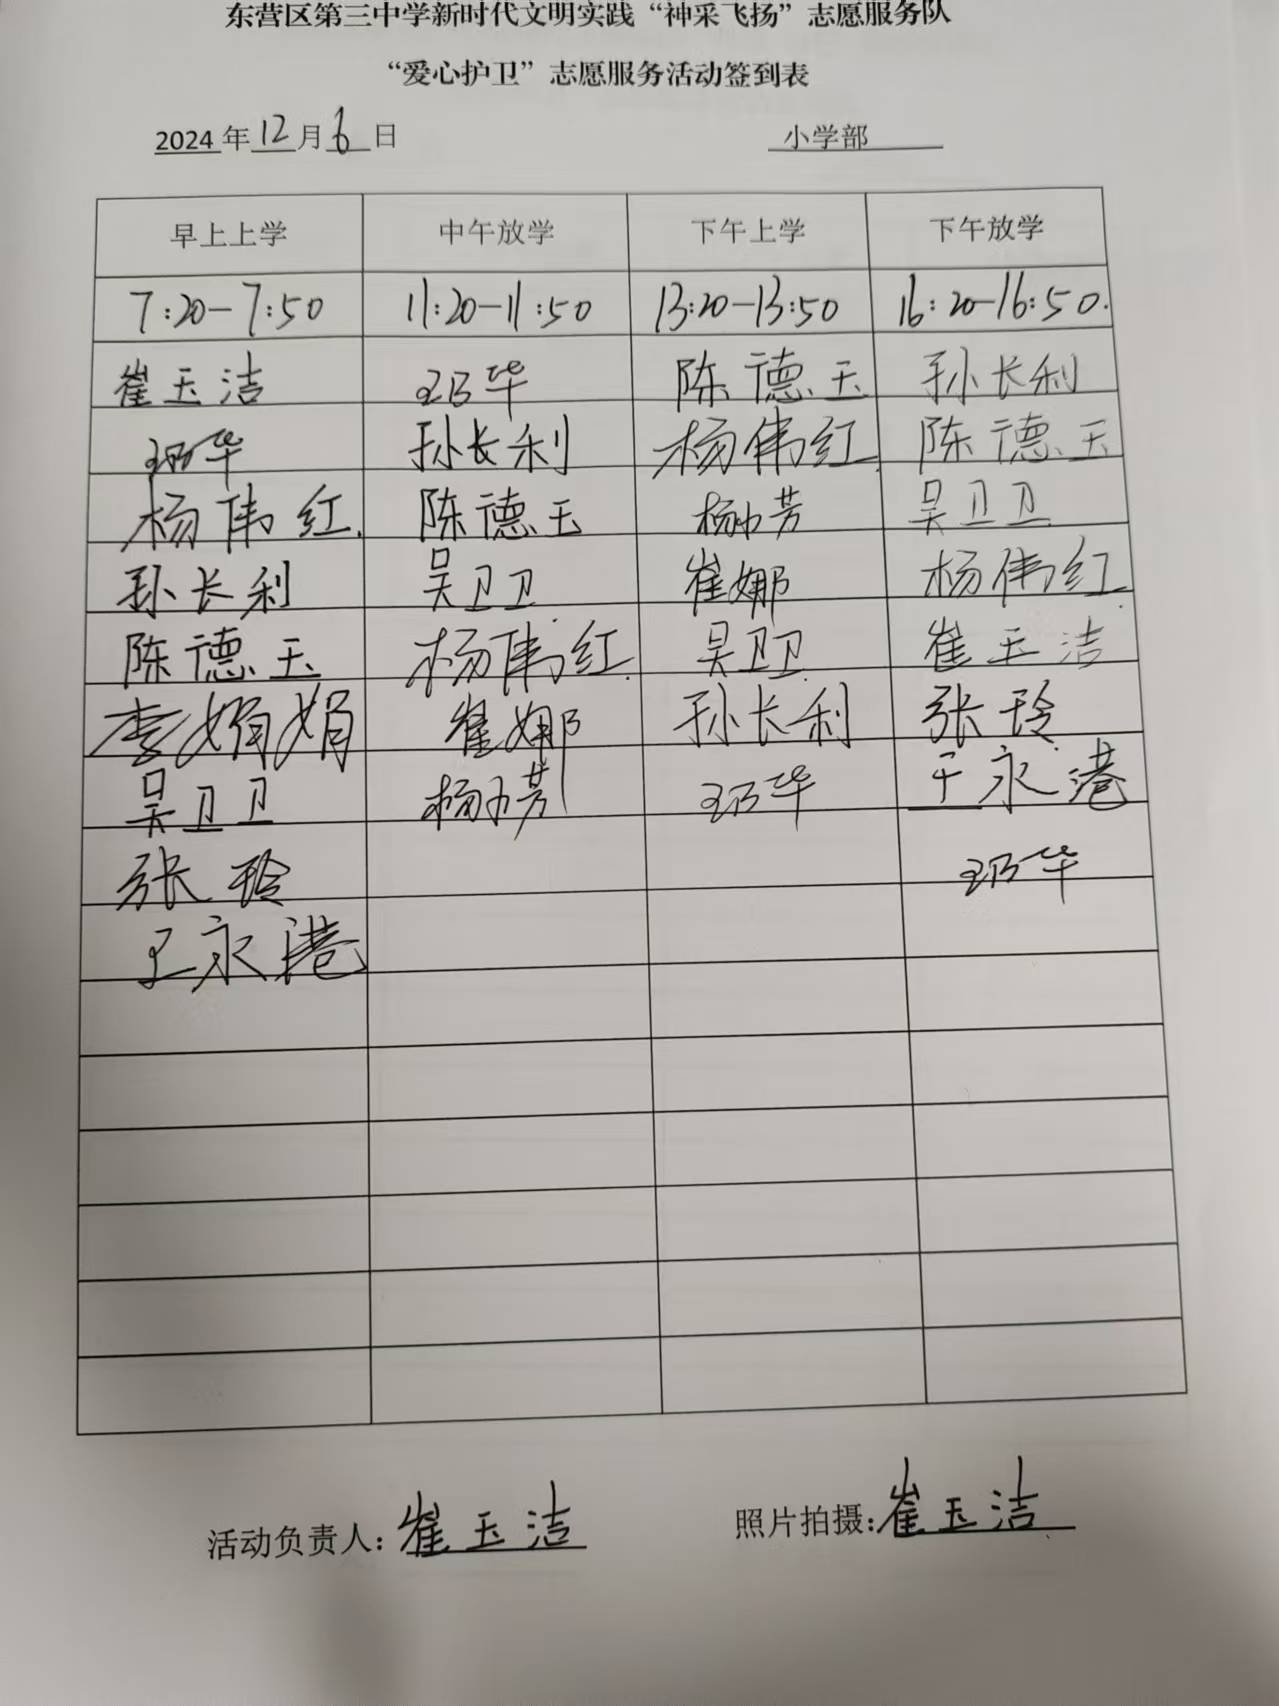 东营区第三中学新时代文明实践“神采飞扬”志愿服务队
“爱心护卫”志愿服务活动签到表
2024年12月6日 小学部
早上上学 中午放学 下午上学 下午放学
7:20-7:50 11:20-11:50 13:20-13:50 16:20-16:50.
崔玉洁 华 陈德玉 孙长利
华 孙长利 杨伟红 陈德玉
杨伟红 陈德玉 杨芳 吴卫卫
孙长利 吴卫卫 崔娜 杨伟红
陈德玉 杨伟红 吴卫卫 崔玉洁
李娟娟 崔娜 孙长利 张玲
吴卫卫 杨芳 华 永港
张玲 华
王永港
活动负责人:崔玉洁 照片拍摄:崔玉洁